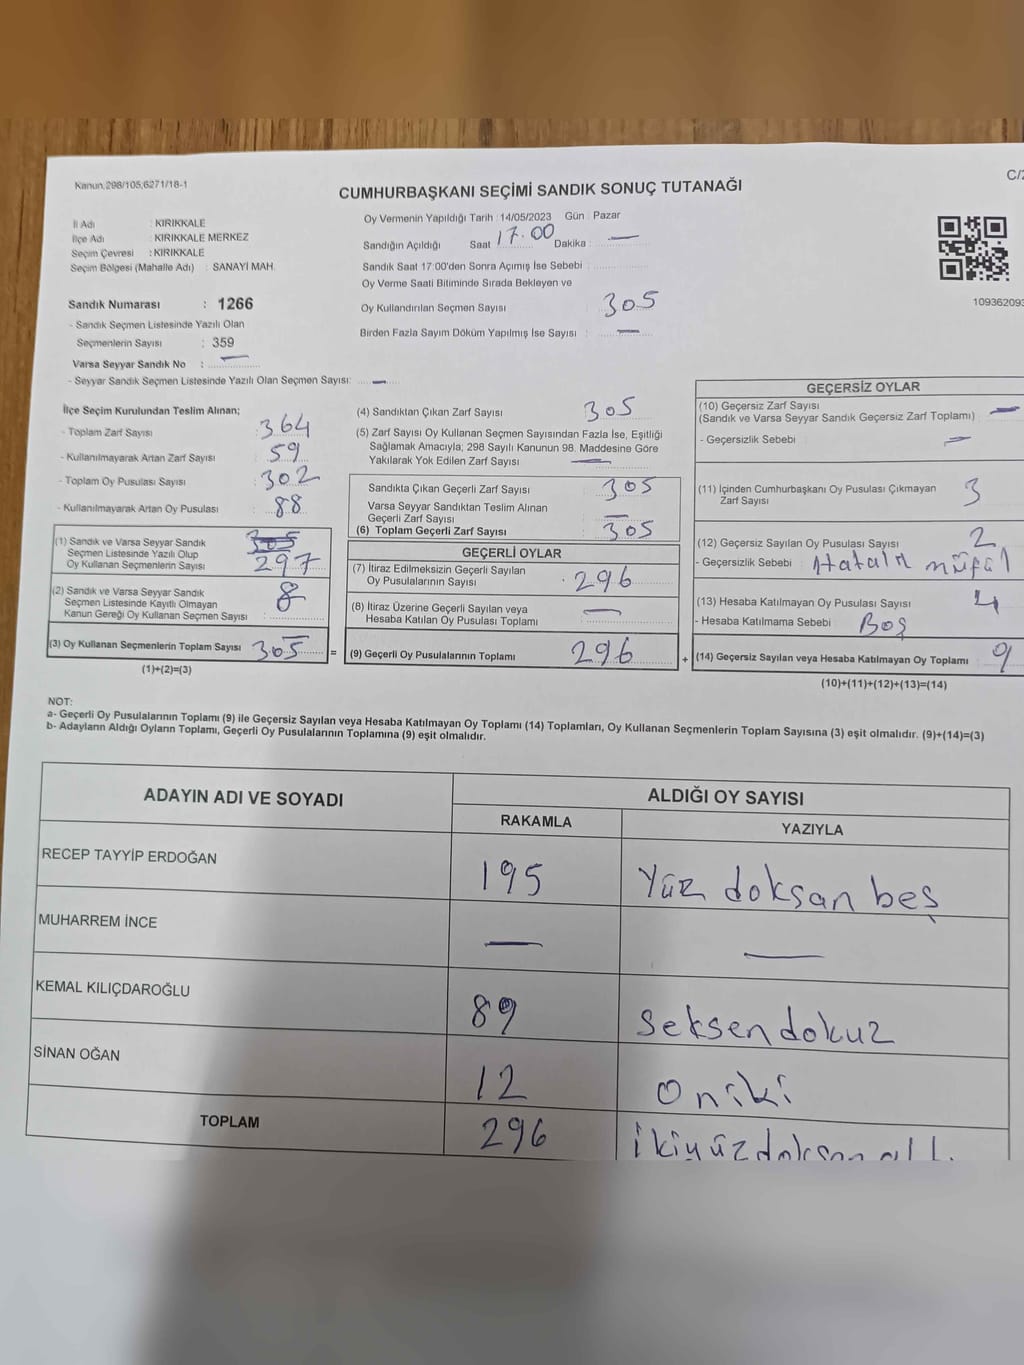 Kanun,298/105,6271/18-1
C/2
CUMHURBAŞKANI SEÇİMİ SANDIK SONUÇ TUTANAĞI
İl Adı : KIRIKKALE
İlçe Adı : KIRIKKALE MERKEZ
Seçim Çevresi : KIRIKKALE
Seçim Bölgesi (Mahalle Adı) : SANAYİ MAH.
Sandık Numarası : 1266
- Sandık Seçmen Listesinde Yazılı Olan
Seçmenlerin Sayısı : 359
Varsa Seyyar Sandık No : —
- Seyyar Sandık Seçmen Listesinde Yazılı Olan Seçmen Sayısı: —
Oy Vermenin Yapıldığı Tarih : 14/05/2023 Gün : Pazar
Sandığın Açıldığı Saat 17.00 Dakika : —
Sandık Saat 17:00'den Sonra Açımış İse Sebebi :
Oy Verme Saati Bitiminde Sırada Bekleyen ve
Oy Kullandırılan Seçmen Sayısı : 305
Birden Fazla Sayım Döküm Yapılmış İse Sayısı : —
109362093
İlçe Seçim Kurulundan Teslim Alınan;
- Toplam Zarf Sayısı : 364
- Kullanılmayarak Artan Zarf Sayısı : 59
- Toplam Oy Pusulası Sayısı : 302
- Kullanılmayarak Artan Oy Pusulası : 88
(1) Sandık ve Varsa Seyyar Sandık 305
Seçmen Listesinde Yazılı Olup
Oy Kullanan Seçmenlerin Sayısı : 297
(2) Sandık ve Varsa Seyyar Sandık
Seçmen Listesinde Kayıtlı Olmayan
Kanun Gereği Oy Kullanan Seçmen Sayısı : 8
(3) Oy Kullanan Seçmenlerin Toplam Sayısı 305
(1)+(2)=(3)
(4) Sandıktan Çıkan Zarf Sayısı : 305
(5) Zarf Sayısı Oy Kullanan Seçmen Sayısından Fazla İse, Eşitliği
Sağlamak Amacıyla; 298 Sayılı Kanunun 98. Maddesine Göre
Yakılarak Yok Edilen Zarf Sayısı : —
Sandıkta Çıkan Geçerli Zarf Sayısı : 305
Varsa Seyyar Sandıktan Teslim Alınan
Geçerli Zarf Sayısı : —
(6) Toplam Geçerli Zarf Sayısı : 305
GEÇERLİ OYLAR
(7) İtiraz Edilmeksizin Geçerli Sayılan
Oy Pusulalarının Sayısı : 296
(8) İtiraz Üzerine Geçerli Sayılan veya
Hesaba Katılan Oy Pusulası Toplamı : —
= (9) Geçerli Oy Pusulalarının Toplamı 296
GEÇERSİZ OYLAR
(10) Geçersiz Zarf Sayısı
(Sandık ve Varsa Seyyar Sandık Geçersiz Zarf Toplamı) : —
- Geçersizlik Sebebi : —
(11) İçinden Cumhurbaşkanı Oy Pusulası Çıkmayan
Zarf Sayısı : 3
(12) Geçersiz Sayılan Oy Pusulası Sayısı : 2
- Geçersizlik Sebebi : Hatalı mühür
(13) Hesaba Katılmayan Oy Pusulası Sayısı : 4
- Hesaba Katılmama Sebebi : Boş
+ (14) Geçersiz Sayılan veya Hesaba Katılmayan Oy Toplamı : 9
(10)+(11)+(12)+(13)=(14)
NOT:
a- Geçerli Oy Pusulalarının Toplamı (9) ile Geçersiz Sayılan veya Hesaba Katılmayan Oy Toplamı (14) Toplamları, Oy Kullanan Seçmenlerin Toplam Sayısına (3) eşit olmalıdır. (9)+(14)=(3)
b- Adayların Aldığı Oyların Toplamı, Geçerli Oy Pusulalarının Toplamına (9) eşit olmalıdır.
ADAYIN ADI VE SOYADI
ALDIĞI OY SAYISI
RAKAMLA YAZIYLA
RECEP TAYYİP ERDOĞAN 195 Yüz doksan beş
MUHARREM İNCE — —
KEMAL KILIÇDAROĞLU 89 Seksendokuz
SİNAN OĞAN 12 Oniki
TOPLAM 296 İkiyüzdoksan altı